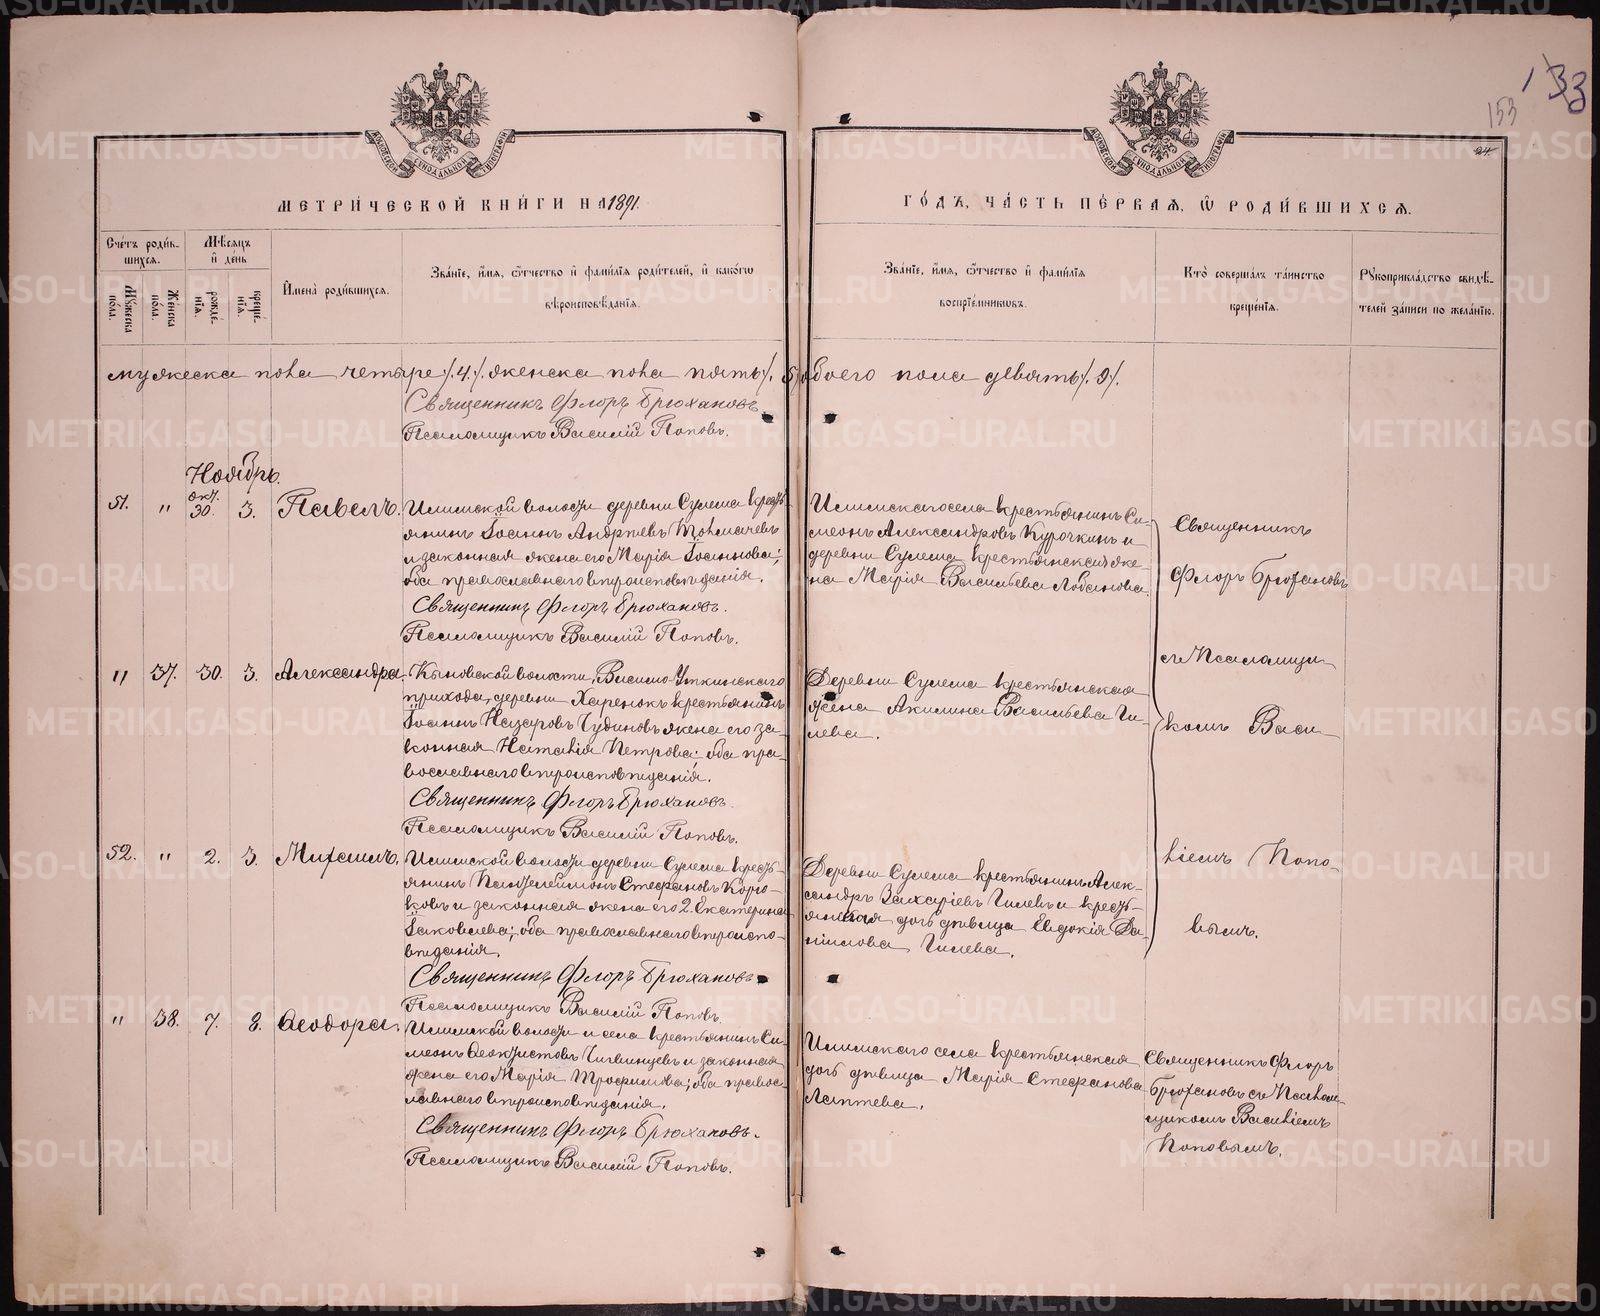 133
153
24.
МОСКОВСКОЙ СѴНОДАЛЬНОЙ ТИПОГРАФІИ
МОСКОВСКОЙ СѴНОДАЛЬНОЙ ТИПОГРАФІИ
МЕТРИ́ЧЕСКОЙ КНИ́ГИ НА 1891.
ГО́ДЪ, ЧА́СТЬ ПЕ́РВАЯ, Ѿ РОДИ́ВШИХСЯ.
Сче́тъ роди́в-
шихся.
Му́жеска по́ла.
Же́нска по́ла.
Мѣ́сяцъ
и де́нь
рожде́нія.
креще́нія.
И́мена роди́вшихся.
Зва́ніе, и́мя, ѻ́тчество и фами́лія роди́телей, и како́гѡ
вѣроисповѣ́данія.
Зва́ніе, и́мя, ѻ́тчество и фами́лія
воспріе́мниковъ.
Кто̀ соверша́лъ та́инство
креще́нія.
Рꙋкоприкла́дство свидѣ́-
телей за́писи по жела́нію.
мужеска пола четыре /.4./. женска пола пять /.5/ обоего пола девять /.9/.
Священникъ Флоръ Брюхановъ.
Псаломщикъ Василій Поповъ.
Ноябрь.
51. " окт. 30. 3. Павелъ.
Илимской волости деревни Сулема кресть-
янинъ Іоаннъ Андреевъ Толмачевъ
и законная жена его Марія Іоаннова;
оба православнаго вѣроисповѣданія.
Священникъ Флоръ Брюхановъ.
Псаломщикъ Василій Поповъ.
Илимскаго села крестьянинъ Си-
меонъ Александровъ Курочкинъ и
деревни Сулема крестьянская же-
на Марія Васильева Лобанова.
Священникъ
Флоръ Брюхановъ
съ Псаломщи-
комъ Васи-
ліемъ Попо-
вымъ.
" 37. 30. 3. Александра.
Кыновской волости, Василио-Уткинскаго
прихода, деревни Харенокъ крестьянинъ
Іоаннъ Назаровъ Чудиновъ жена его за-
конная Наталія Петрова; оба пра-
вославнаго вѣроисповѣданія.
Священникъ Флоръ Брюхановъ.
Псаломщикъ Василій Поповъ.
Деревни Сулема крестьянская
жена Акилина Васильева Ги-
лева.
52. " 2. 3. Михаилъ.
Илимской волости деревни Сулема кресть-
янинъ Пантелеймонъ Стефановъ Корю-
ковъ и законная жена его 2. Екатерина
Іаковлева; оба православнаго вѣроиспо-
вѣданія.
Священникъ Флоръ Брюхановъ
Псаломщикъ Василій Поповъ.
Деревни Сулема крестьянинъ Алек-
сандръ Захаріевъ Гилевъ и кресть-
янская дочь дѣвица Евдокія Да-
ніилова Гилева.
" 38. 7. 8. Ѳеодора.
Илимской волости и села крестьянинъ Си-
меонъ Ѳеоктистовъ Чигвинцевъ и законная
жена его Марія Трофимова; оба правос-
лавнаго вѣроисповѣданія.
Священникъ Флоръ Брюхановъ.
Псаломщикъ Василій Поповъ.
Илимскаго села крестьянская
дочь дѣвица Марія Стефанова
Лаптева.
Священникъ Флоръ
Брюхановъ съ Псалом-
щикомъ Василіемъ
Поповымъ.
METRIKI.GASO-URAL.RU